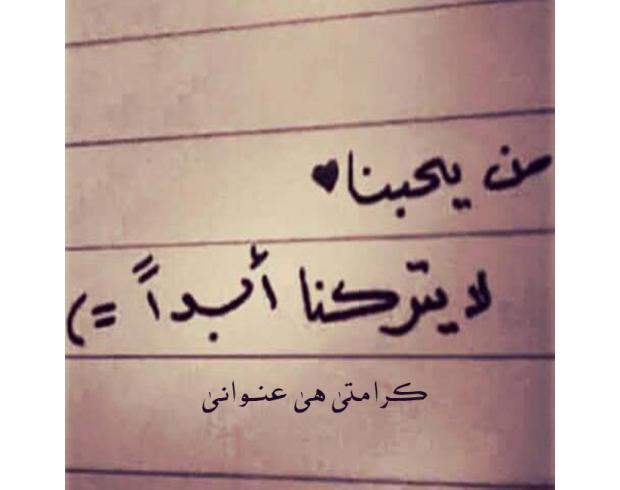 من يحبنا♥
لا يتركنا أبداً =)
كرامتىٰ هىٰ عنوانىٰ